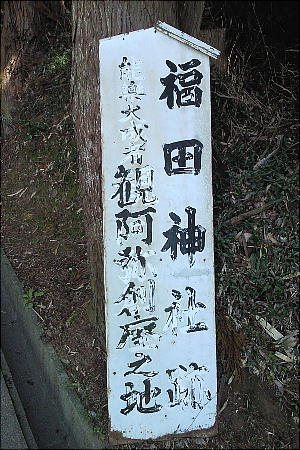 福田神社跡
能楽大成者観阿弥創座之地